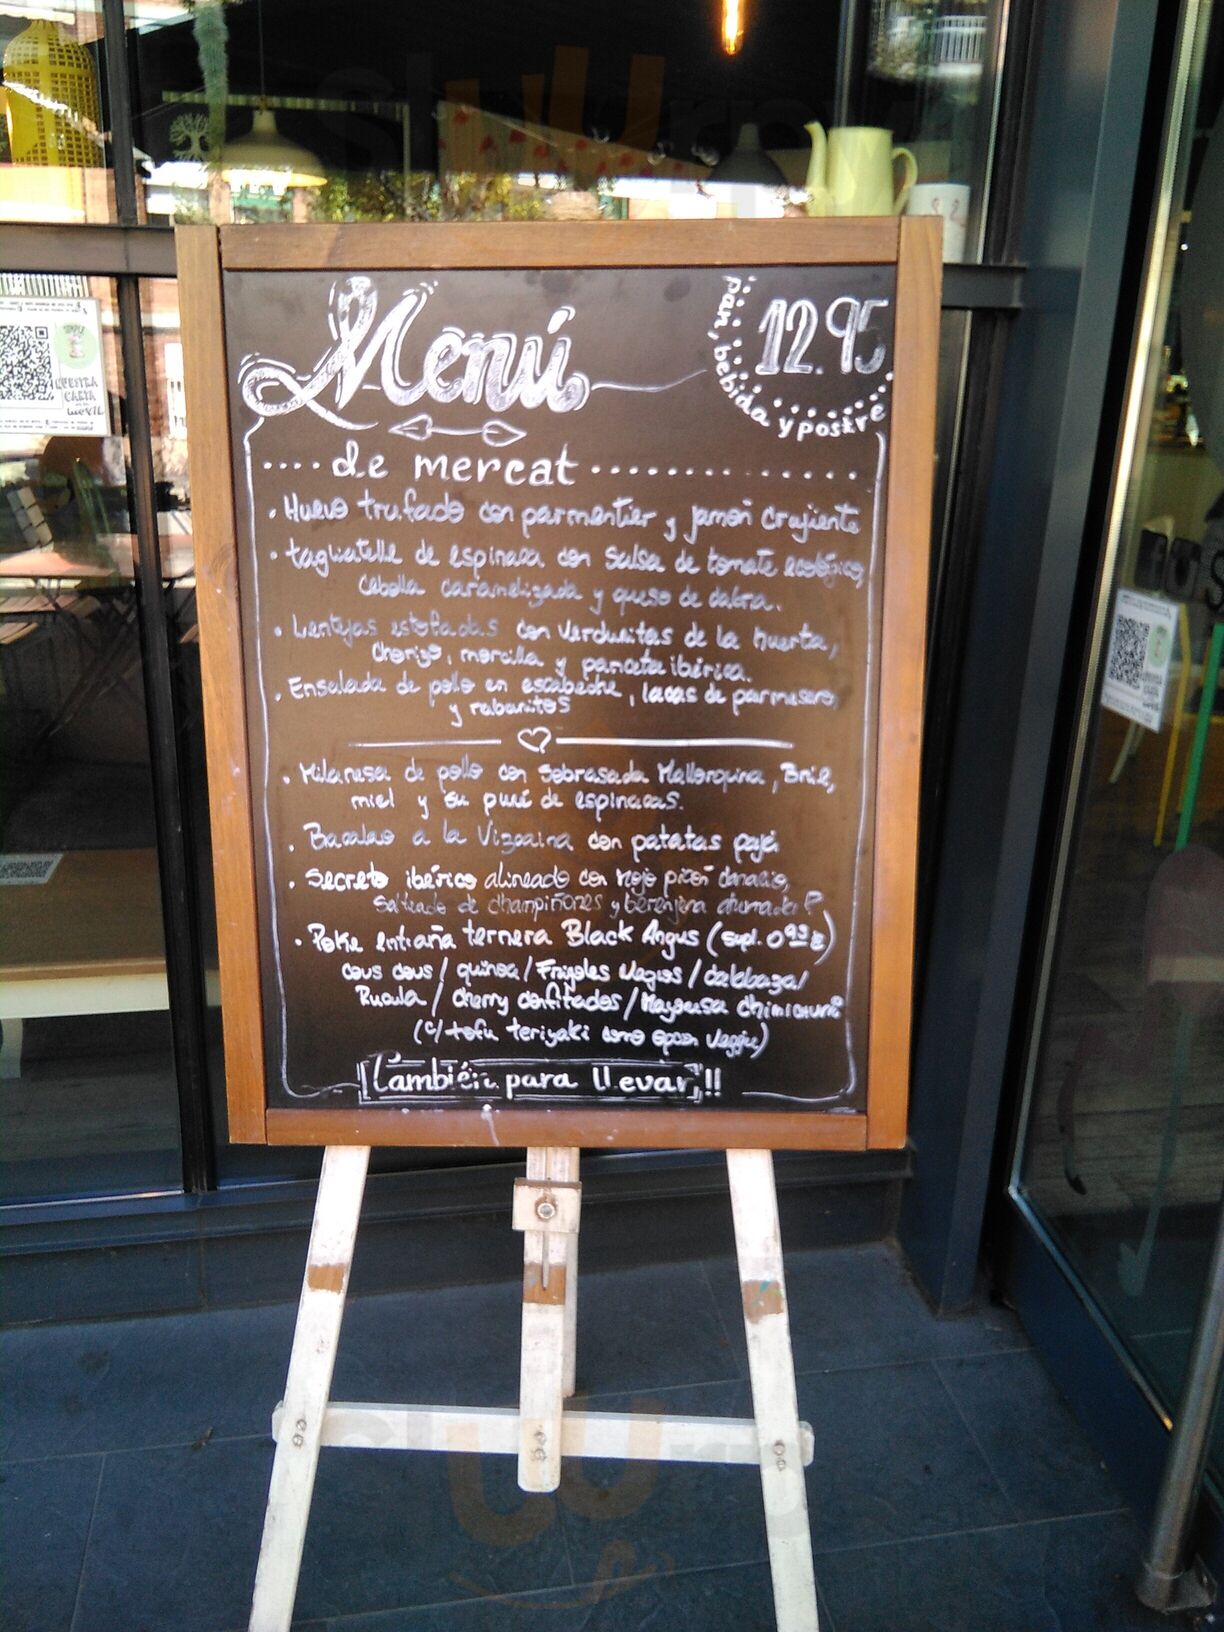 Menú
12.95
pan, bebida y postre
de mercat
· Huevo trufado con parmentier y jamón crujiente
· tagliatelle de espinaca con salsa de tomate ecológico,
cebolla caramelizada y queso de cabra.
· Lentejas estofadas con verduritas de la huerta,
chorizo, morcilla y panceta ibérica.
· Ensalada de pollo en escabeche, lacas de parmesano
y rabanitos
· Milanesa de pollo con sobrasada Mallorquina, Brie,
miel y su puré de espinacas.
· Bacalao a la Vizcaina con patatas paja
· Secreto ibérico alineado con mojo picón canario,
salteado de champiñones y berenjena ahumada
· Poke entraña ternera Black Angus (supl. 0'95 €)
cous cous / quinoa / Frijoles negros / calabaza /
Rucula / cherry confitados / Mayonesa chimichurri
(c/ tofu teriyaki como opcion veggie)
también para llevar!!
NUESTRA
CARTA
sluurpy
sluurpy